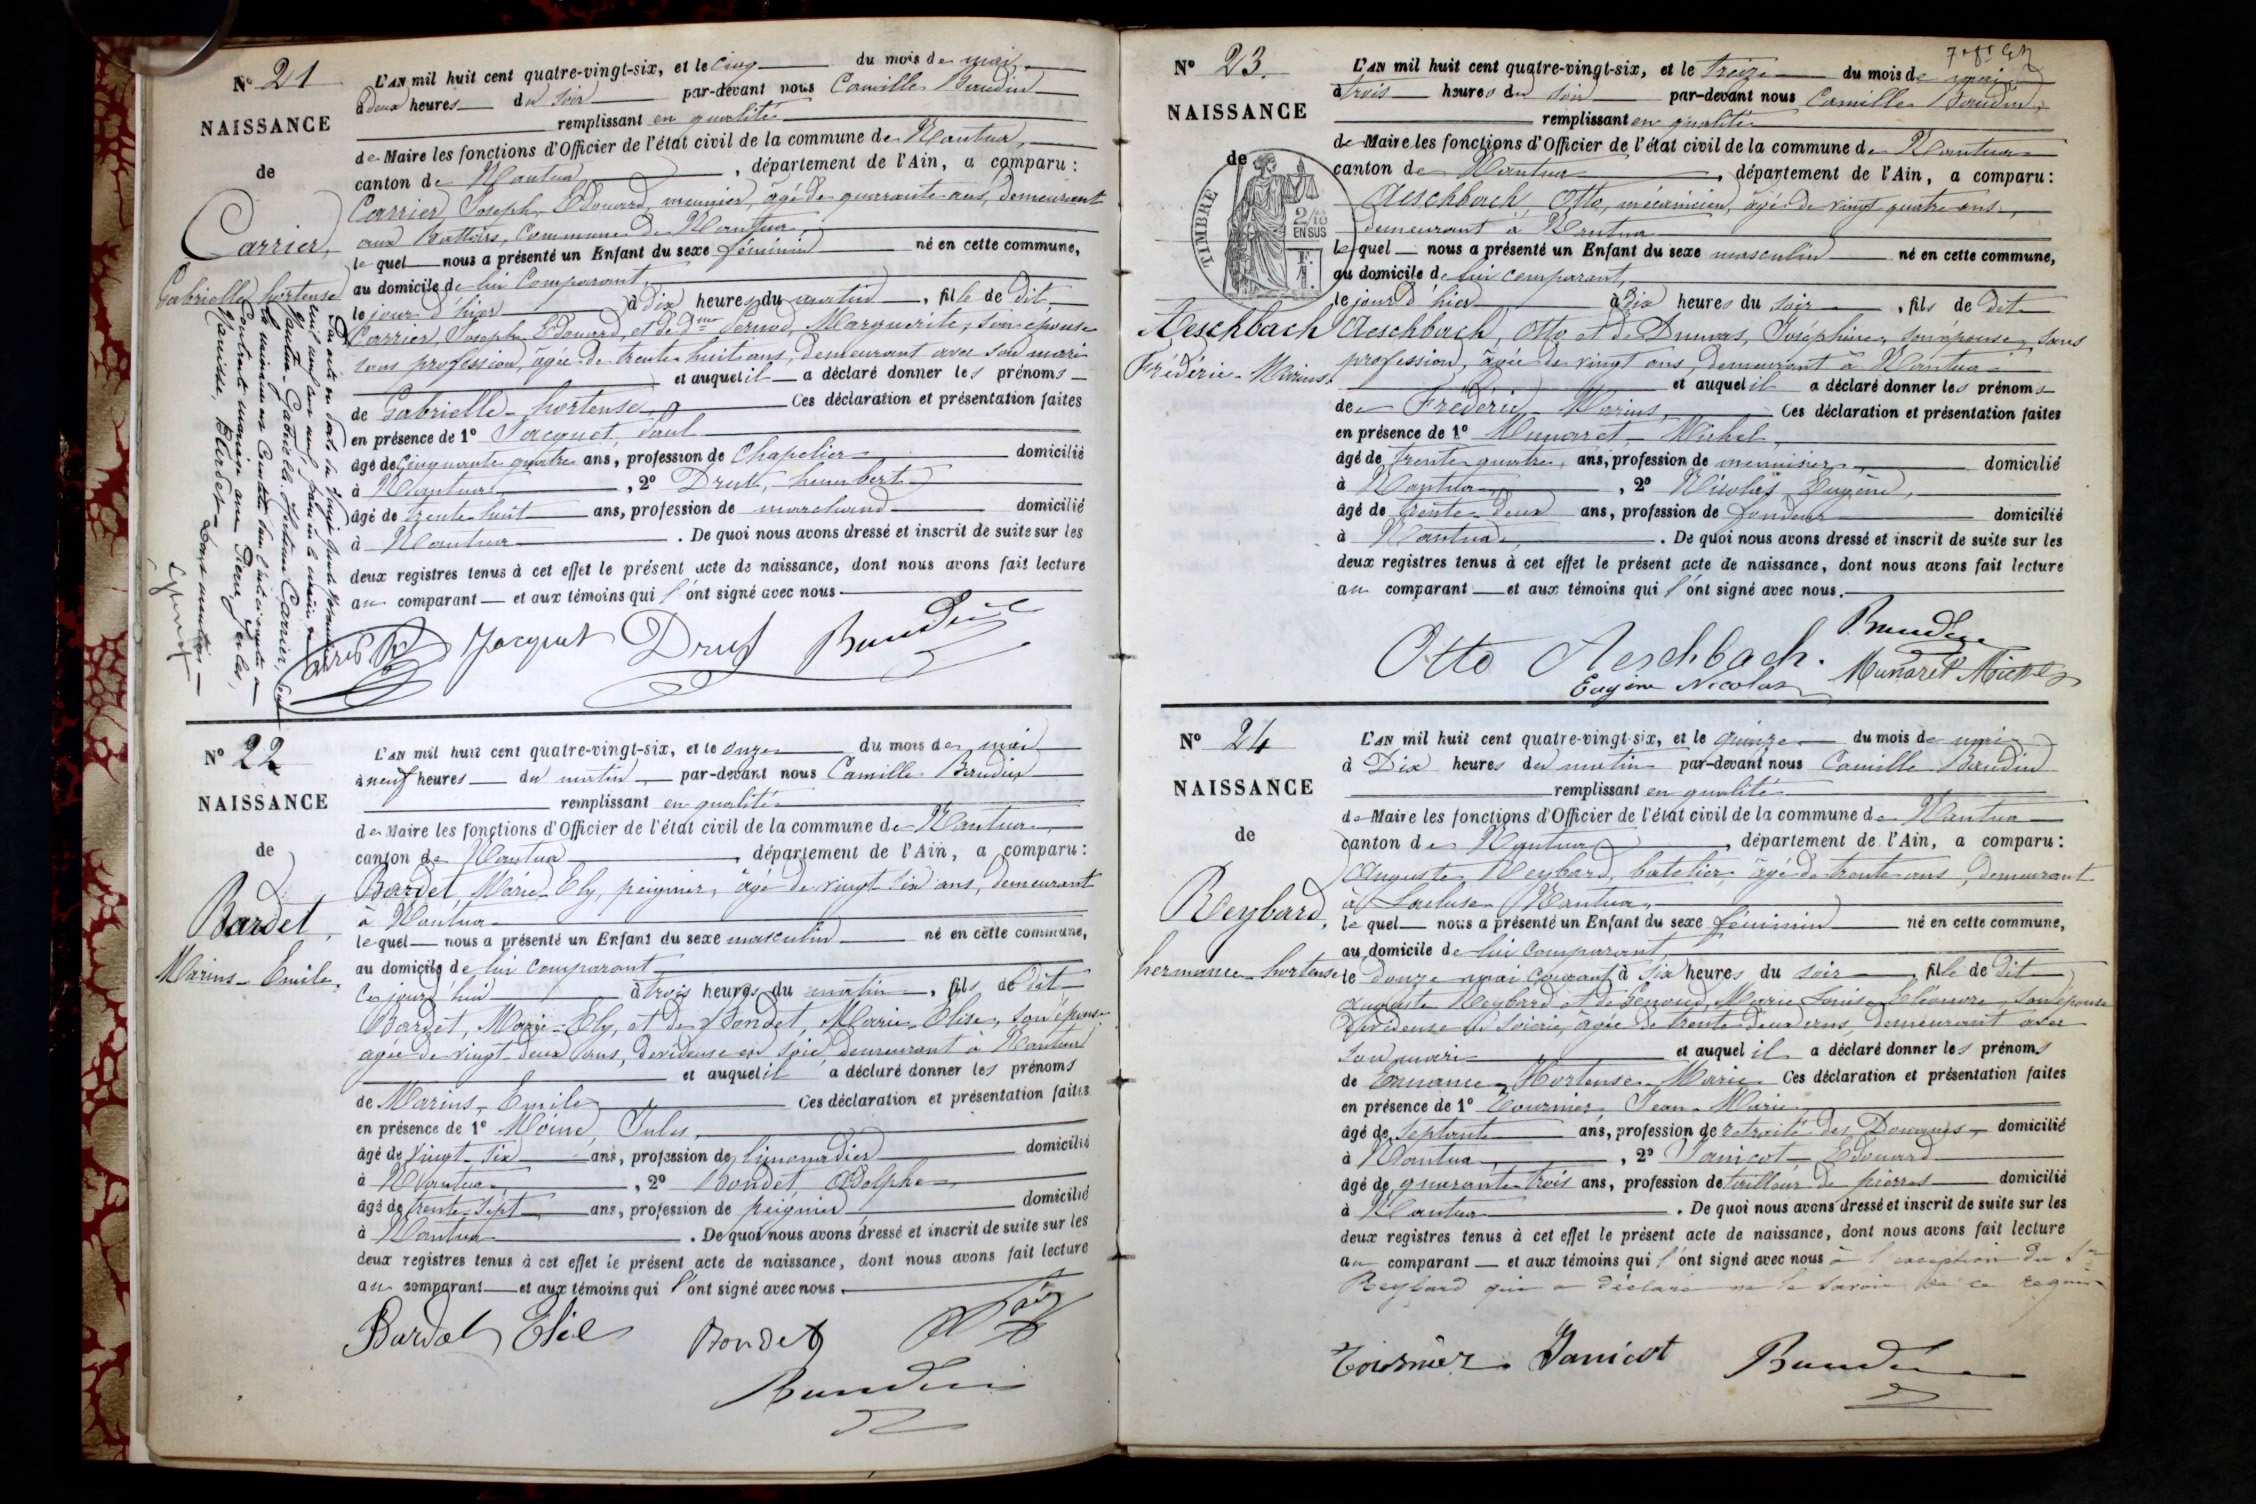 N° 21
NAISSANCE
de
Carrier,
Gabrielle hortense
L'AN mil huit cent quatre-vingt-six, et le Cinq du mois de mai
à deux heures du soir par-devant nous Camille Baudin
remplissant en qualité
de Maire les fonctions d'Officier de l'état civil de la commune de Nantua,
canton de Nantua, département de l'Ain, a comparu :
Carrier Joseph Edouard, meunier, âgé de quarante ans, demeurant
aux Battoirs, Commune de Nantua,
lequel nous a présenté un Enfant du sexe féminin né en cette commune,
au domicile de lui Comparant,
le jour d'hier à dix heures du matin, fille de dit
Carrier, Joseph Edouard, et de Marguerite, son épouse
sans profession, âgée de trente huit ans, demeurant avec son mari
et auquel il a déclaré donner les prénoms
de Gabrielle hortense Ces déclaration et présentation faites
en présence de 1° Jacquet, Paul
âgé de Cinquante quatre ans, profession de Chapelier domicilié
à Nantua, 2° Drut, humbert
âgé de trente huit ans, profession de marchand domicilié
à Nantua. De quoi nous avons dressé et inscrit de suite sur les
deux registres tenus à cet effet le présent acte de naissance, dont nous avons fait lecture
au comparant et aux témoins qui l'ont signé avec nous
Jacquet Drut Baudin
N° 22
NAISSANCE
de
Bardet,
Marius Emile.
L'AN mil huit cent quatre-vingt-six, et le onze du mois de mai
à neuf heures du matin par-devant nous Camille Baudin
remplissant en qualité
de Maire les fonctions d'Officier de l'état civil de la commune de Nantua
canton de Nantua, département de l'Ain, a comparu :
Bardet, Marie Ely, peignier, âgé de vingt six ans, demeurant
à Nantua
lequel nous a présenté un Enfant du sexe masculin né en cette commune,
au domicile de lui comparant
Ce jourd'hui à trois heures du matin, fils de dit
Bardet, Marie-Ely, et de Bondet, Marie Elise, son épouse
âgée de vingt deux ans, devideuse en soie, demeurant à Nantua
et auquel il a déclaré donner les prénoms
de Marius, Emile Ces déclaration et présentation faites
en présence de 1° Moine, Jules,
âgé de vingt six ans, profession de limonadier domicilié
à Nantua, 2° Bondet Adolphe
âgé de trente-sept ans, profession de peignier domicilié
à Nantua. De quoi nous avons dressé et inscrit de suite sur les
deux registres tenus à cet effet le présent acte de naissance, dont nous avons fait lecture
au comparant et aux témoins qui l'ont signé avec nous.
Bardet Elie Bondet
Baudin
N° 23.
NAISSANCE
de
TIMBRE
2/10 EN SUS
Aeschbach
Frédéric-Marius.
L'AN mil huit cent quatre-vingt-six, et le treize du mois de mai
à trois heures du soir par-devant nous Camille Baudin,
remplissant en qualité
de Maire les fonctions d'Officier de l'état civil de la commune de Nantua
canton de Nantua, département de l'Ain, a comparu :
Aeschbach Otto, mécanicien, âgé de vingt quatre ans,
demeurant à Nantua
lequel nous a présenté un Enfant du sexe masculin né en cette commune,
au domicile de lui comparant,
le jour d'hier à dix heures du soir, fils de dit
Aeschbach, Otto et de Joséphine, son épouse, sans
profession, âgée de vingt ans, demeurant à Nantua
et auquel il a déclaré donner les prénoms
de Frédéric Marius, Ces déclaration et présentation faites
en présence de 1° Munaret Michel,
âgé de trente quatre ans, profession de menuisier, domicilié
à Nantua, 2° Nicolas Eugène,
âgé de trente deux ans, profession de fondeur domicilié
à Nantua. De quoi nous avons dressé et inscrit de suite sur les
deux registres tenus à cet effet le présent acte de naissance, dont nous avons fait lecture
au comparant et aux témoins qui l'ont signé avec nous.
Baudin
Otto Aeschbach. Munaret Michel
Eugène Nicolas
N° 24
NAISSANCE
de
Reybard,
hermance hortense
L'AN mil huit cent quatre-vingt-six, et le quinze du mois de mai
à Dix heures du matin par-devant nous Camille Baudin
remplissant en qualité
de Maire les fonctions d'Officier de l'état civil de la commune de Nantua
canton de Nantua, département de l'Ain, a comparu :
Auguste Reybard, batelier âgé de trente ans, demeurant
à Nantua,
lequel nous a présenté un Enfant du sexe féminin né en cette commune,
au domicile de lui Comparant
le douze mai Courant à six heures du soir, fille de dit
Auguste Reybard et de Marie Louise Eléonore, son épouse
devideuse de soierie, âgée de trente deux ans, demeurant avec
son mari et auquel il a déclaré donner les prénoms
de Ermance Hortense Marie Ces déclaration et présentation faites
en présence de 1° Tournier, Jean Marie
âgé de septante ans, profession de retraité des Douanes domicilié
à Nantua, 2° Janicot Edouard
âgé de quarante-trois ans, profession de tailleur de pierres domicilié
à Nantua. De quoi nous avons dressé et inscrit de suite sur les
deux registres tenus à cet effet le présent acte de naissance, dont nous avons fait lecture
au comparant et aux témoins qui l'ont signé avec nous à l'exception du Sr
Reybard qui a déclaré ne le savoir de ce requis
Tournier Janicot Baudin